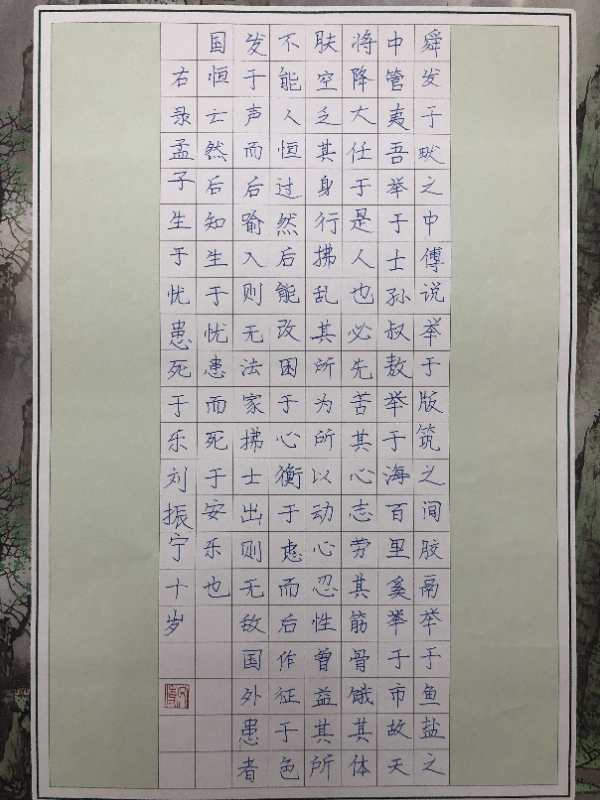 舜发于畎之中傅说举于版筑之间胶鬲举于鱼盐之
中管夷吾举于士孙叔敖举于海百里奚举于市故天
将降大任于是人也必先苦其心志劳其筋骨饿其体
肤空乏其身行拂乱其所为所以动心忍性曾益其所
不能人恒过然后能改困于心衡于虑而后作征于色
发于声而后喻入则无法家拂士出则无敌国外患者
国恒亡然后知生于忧患而死于安乐也
右录孟子生于忧患死于乐刘振宁十岁